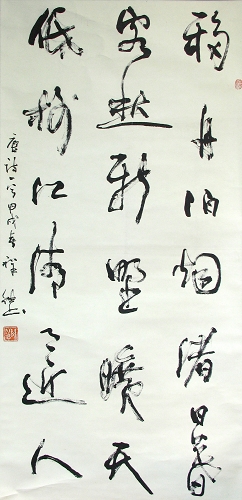 移舟泊烟渚日暮
客愁新野曠天
低樹江清月近人
唐詩一首甲戌年祥